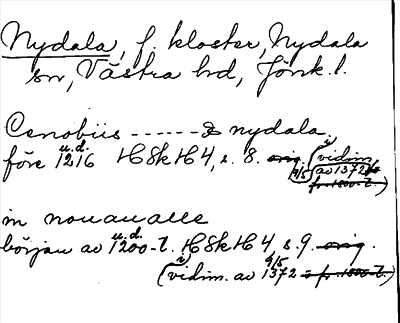 Nydala, f. kloster, Nydala
sn, Västra hd, Jönk. l.
Cenobiis ------ & nydala.
före u.d. 1216 HSkH 4, s. 8. orig. (i vidim.
9/5 av 1372 fr. 1800-t.)
in nouaualle
början av u.d. 1200-t. HSkH 4, s. 9. orig.
(i vidim. av 9/5 1372 fr. 1800-t.)